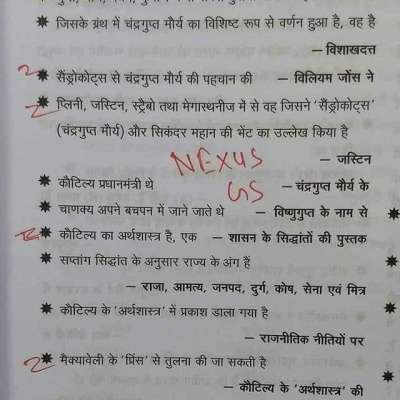 * जिसके ग्रंथ में चंद्रगुप्त मौर्य का विशिष्ट रूप से वर्णन हुआ है, वह है
– विशाखदत्त
* सैंड्रोकोट्स से चंद्रगुप्त मौर्य की पहचान की – विलियम जोंस ने
* प्लिनी, जस्टिन, स्ट्रैबो तथा मेगास्थनीज में से वह जिसने 'सैंड्रोकोट्स'
(चंद्रगुप्त मौर्य) और सिकंदर महान की भेंट का उल्लेख किया है
NEXUS
– जस्टिन
GS
* कौटिल्य प्रधानमंत्री थे – चंद्रगुप्त मौर्य के
* चाणक्य अपने बचपन में जाने जाते थे – विष्णुगुप्त के नाम से
* कौटिल्य का अर्थशास्त्र है, एक – शासन के सिद्धांतों की पुस्तक
* सप्तांग सिद्धांत के अनुसार राज्य के अंग हैं
– राजा, आमत्य, जनपद, दुर्ग, कोष, सेना एवं मित्र
* कौटिल्य के 'अर्थशास्त्र' में प्रकाश डाला गया है
– राजनीतिक नीतियों पर
* मैक्यावेली के 'प्रिंस' से तुलना की जा सकती है
– कौटिल्य के 'अर्थशास्त्र' की